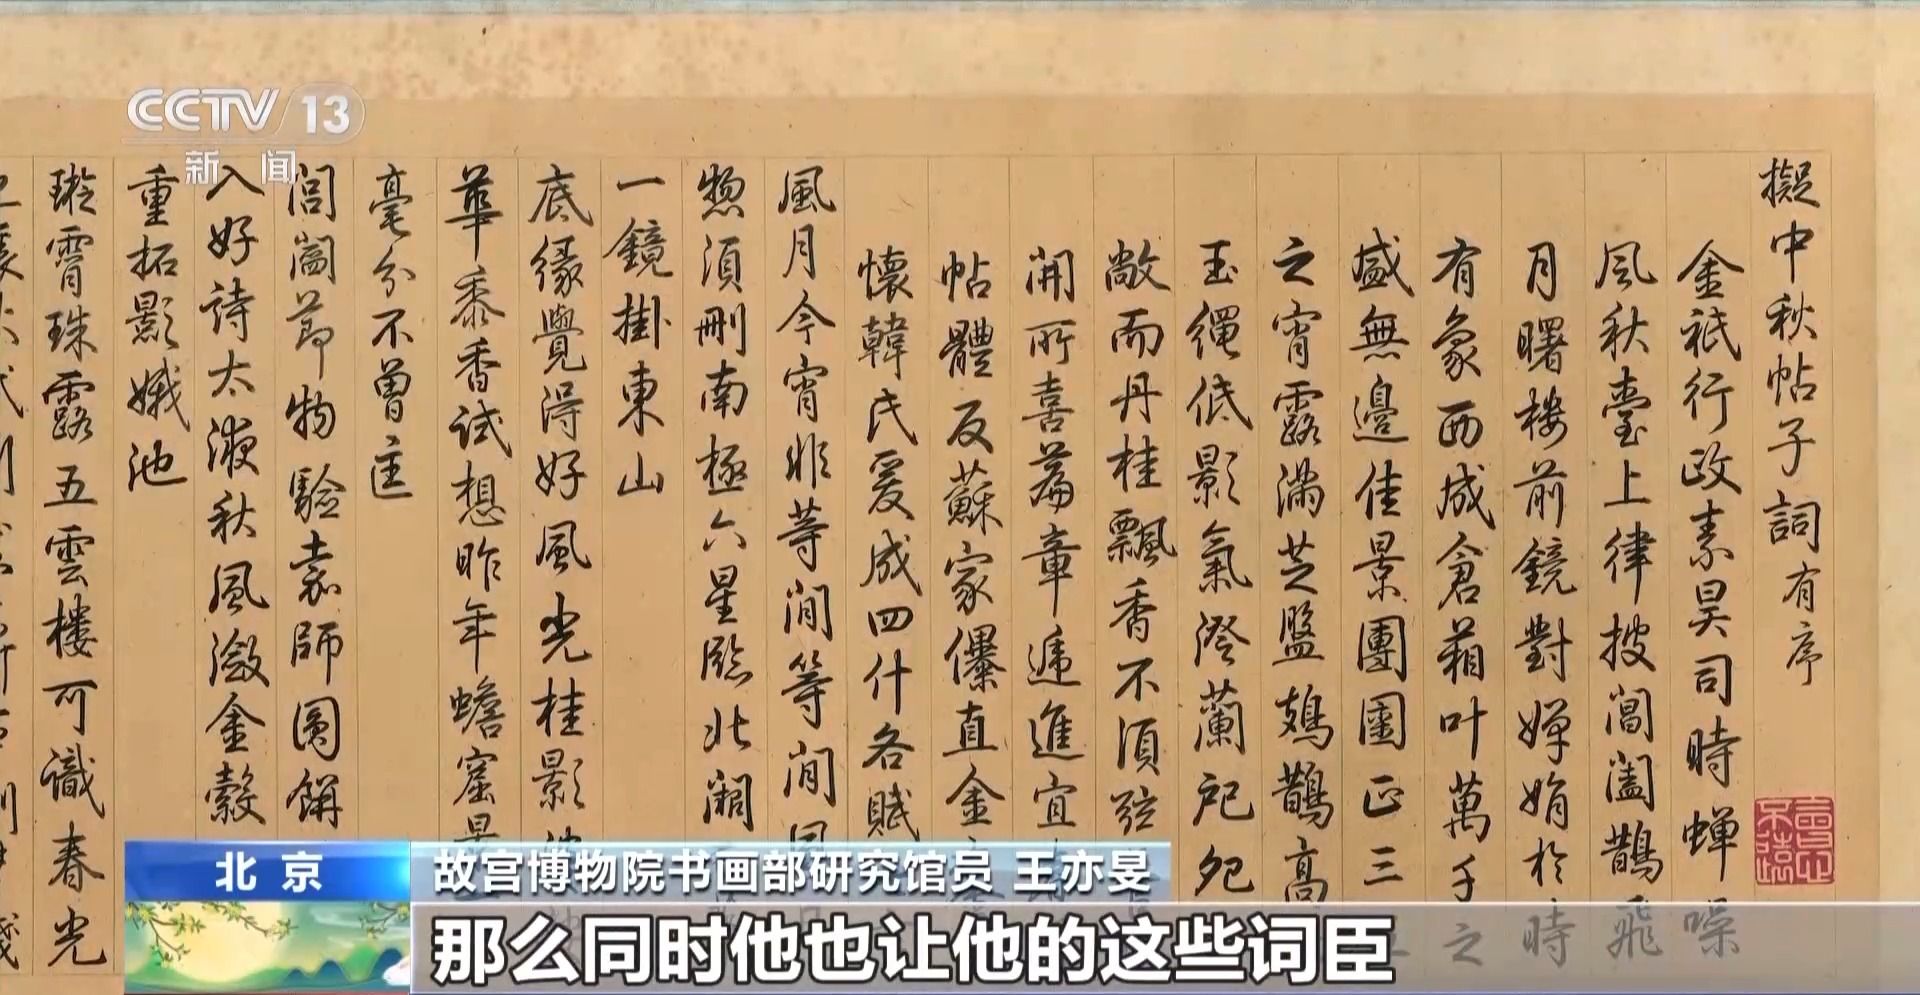 CCTV 13
新闻
擬中秋帖子詞有序
金祇行政素昊司時蟬噪
風秋臺上律披閶闔鵲飛
月曙楼前鏡對嬋娟於時
有象西成倉箱叶萬千之
盛無邊佳景團圞正三
之宵露滿芝盤鳷鵲高
玉繩低影氣澄蘭戺
敞而丹桂飄香不須
開所喜篇章遞進宜
帖體反蘇家儤直金
懷韓氏爰成四什各賦
風月今宵非等閒等閒
惣須刪南極六星臨北闕
一鏡掛東山
底緣覺得好風光桂影
華黍香試想昨年蟾窟
毫分不曾
閶闔節物驗嘉師圓餅
入好詩太液秋風瀲金縠
重拓影娥池
璇霄珠露五雲楼可識春光
北京
故宫博物院书画部研究馆员 王亦旻
那么同时他也让他的这些词臣